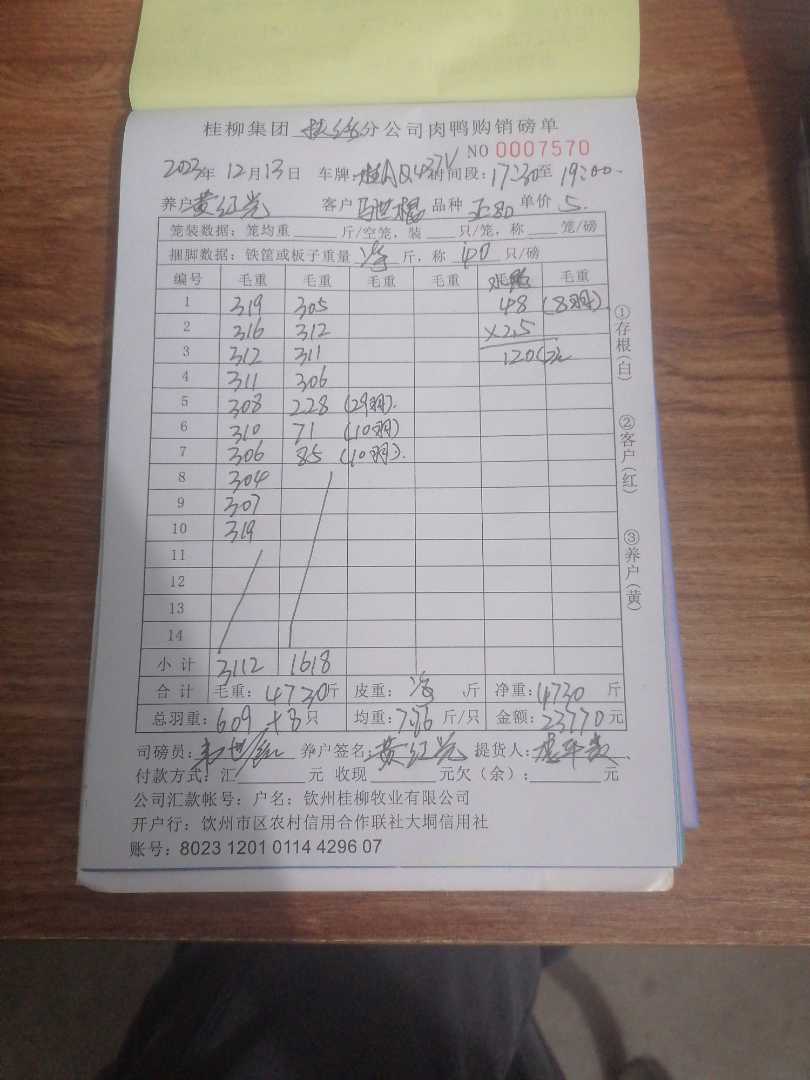 桂柳集团 扶绥 分公司肉鸭购销磅单
NO 0007570
2023年 12月13日 车牌: 时间段: 17:30至 19:00
养户 黄红党 客户 马世棍 品种 正80 单价 5.
笼装数据: 笼均重 斤/空笼, 装 只/笼, 称 笼/磅
捆脚数据: 铁筐或板子重量 净 斤, 称 40 只/磅
编号 毛重 毛重 毛重 毛重 毛重
1 319 305 48 (8羽)
2 316 312 ×2.5
3 312 311 120元
4 311 306
5 308 228 (29羽).
6 310 71 (10羽)
7 306 85 (10羽).
8 304
9 307
10 319
11
12
13
14
小计 3112 1618
合计 毛重: 4730斤 皮重: 净 斤 净重: 4730 斤
总羽重: 609 +8只 均重: 7.86 斤/只 金额: 23770元
司磅员: 养户签名: 黄红党 提货人:
付款方式: 汇 元 收现 元欠(余): 元
公司汇款帐号: 户名: 钦州桂柳牧业有限公司
开户行: 钦州市区农村信用合作联社大垌信用社
账号: 8023 1201 0114 4296 07
①存根(白)
②客户(红)
③养户(黄)